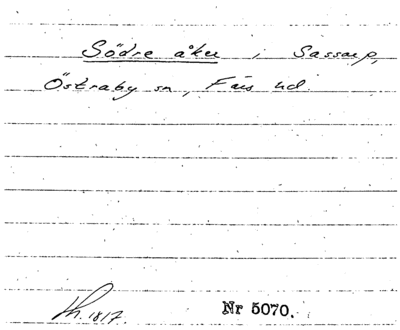 Södre åker i Sassarp,
Östraby sn, Färs hd.
Lh. 1817. Nr 5070.